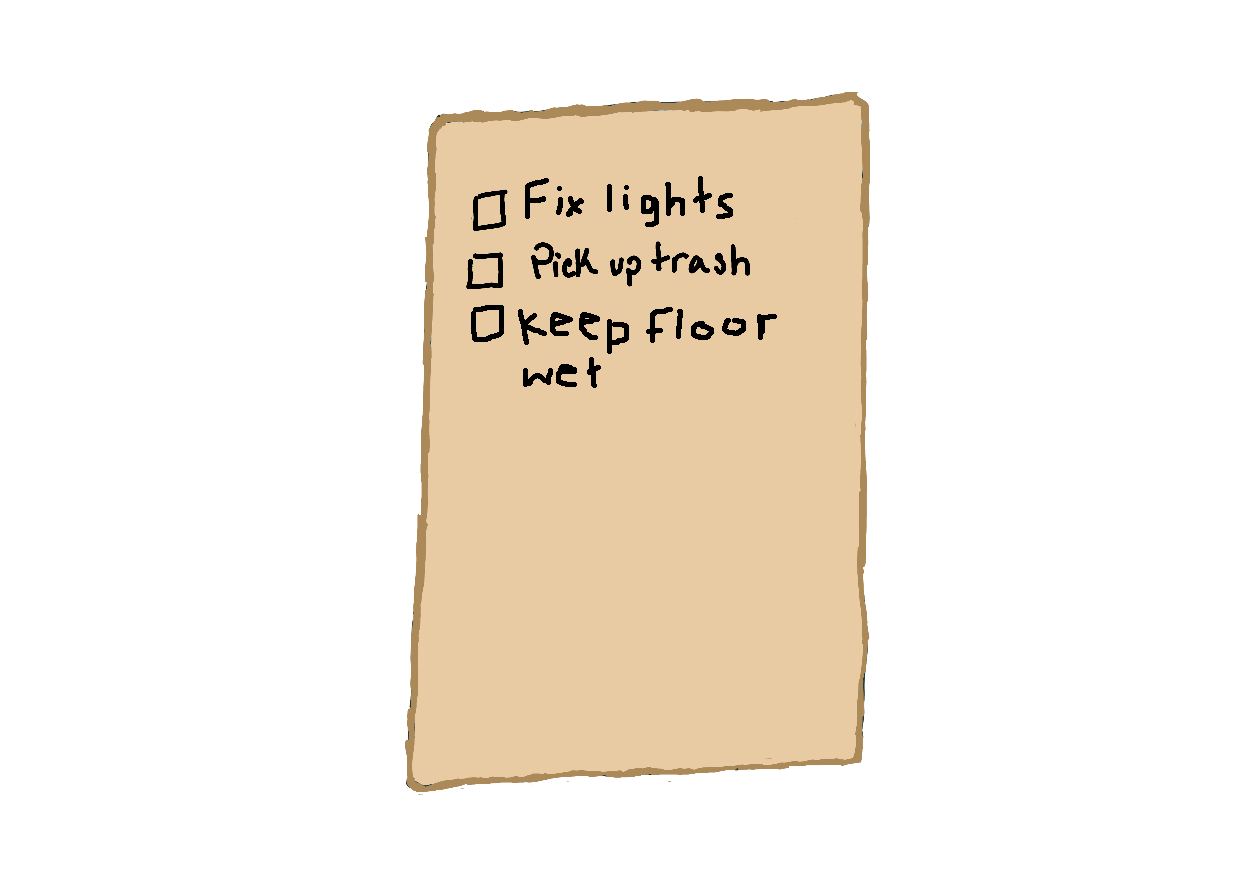 Fix lights
Pick up trash
keep floor
wet